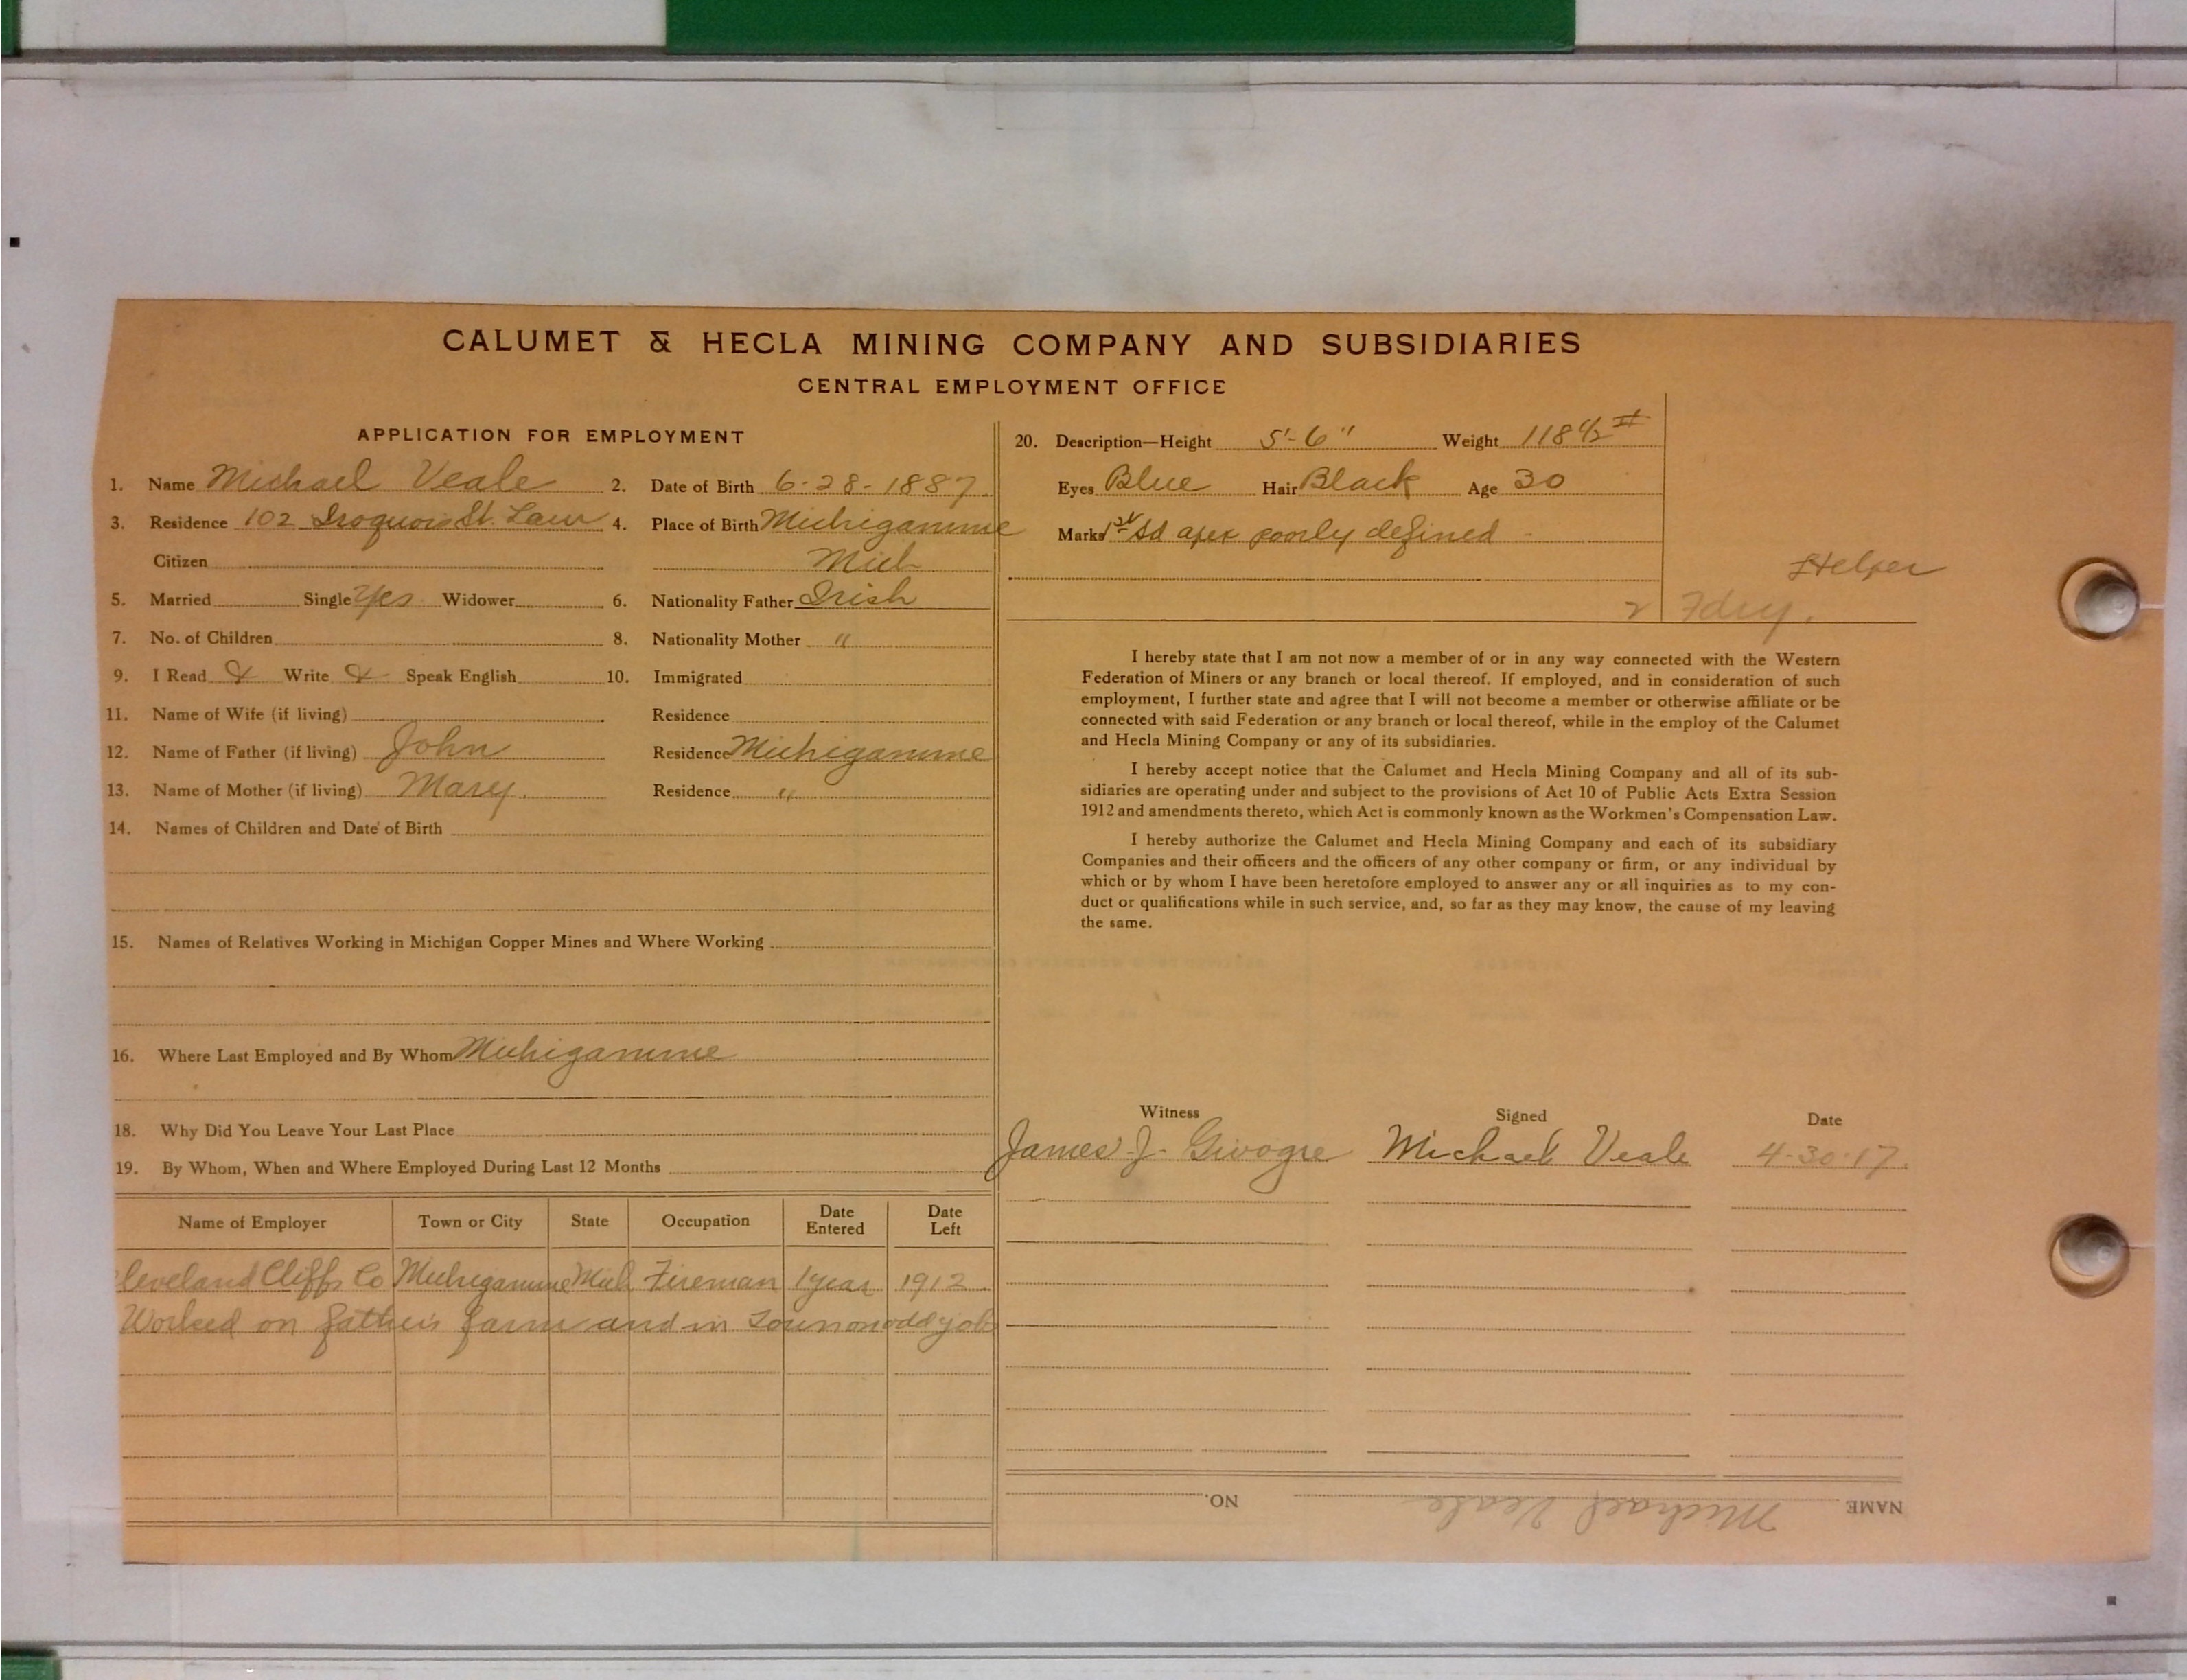 CALUMET & HECLA MINING COMPANY AND SUBSIDIARIES
CENTRAL EMPLOYMENT OFFICE
APPLICATION FOR EMPLOYMENT
1. Name Michael Veale 2. Date of Birth 6-28-1887.
3. Residence 102 Iroquois St. Laur 4. Place of Birth Michigamme
Citizen Mich
5. Married Single Yes Widower 6. Nationality Father Irish
7. No. of Children 8. Nationality Mother "
9. I Read & Write & Speak English 10. Immigrated
11. Name of Wife (if living) Residence
12. Name of Father (if living) John Residence Michigamme
13. Name of Mother (if living) Mary. Residence "
14. Names of Children and Date of Birth
15. Names of Relatives Working in Michigan Copper Mines and Where Working
16. Where Last Employed and By Whom Michigamme
18. Why Did You Leave Your Last Place
19. By Whom, When and Where Employed During Last 12 Months
Name of Employer Town or City State Occupation Date Entered Date Left
Cleveland Cliffs Co Michigamme Mich Fireman 1 year 1912
Worked on father's farm and in Town on odd jobs
20. Description—Height 5'-6" Weight 118 1/2 #
Eyes Blue Hair Black Age 30
Marks 1st Sd apex poorly defined
Helper
Fdry.
I hereby state that I am not now a member of or in any way connected with the Western
Federation of Miners or any branch or local thereof. If employed, and in consideration of such
employment, I further state and agree that I will not become a member or otherwise affiliate or be
connected with said Federation or any branch or local thereof, while in the employ of the Calumet
and Hecla Mining Company or any of its subsidiaries.
I hereby accept notice that the Calumet and Hecla Mining Company and all of its sub-
sidiaries are operating under and subject to the provisions of Act 10 of Public Acts Extra Session
1912 and amendments thereto, which Act is commonly known as the Workmen's Compensation Law.
I hereby authorize the Calumet and Hecla Mining Company and each of its subsidiary
Companies and their officers and the officers of any other company or firm, or any individual by
which or by whom I have been heretofore employed to answer any or all inquiries as to my con-
duct or qualifications while in such service, and, so far as they may know, the cause of my leaving
the same.
Witness Signed Date
James J. Michael Veale 4-30-17.
NAME Michael Veale NO.